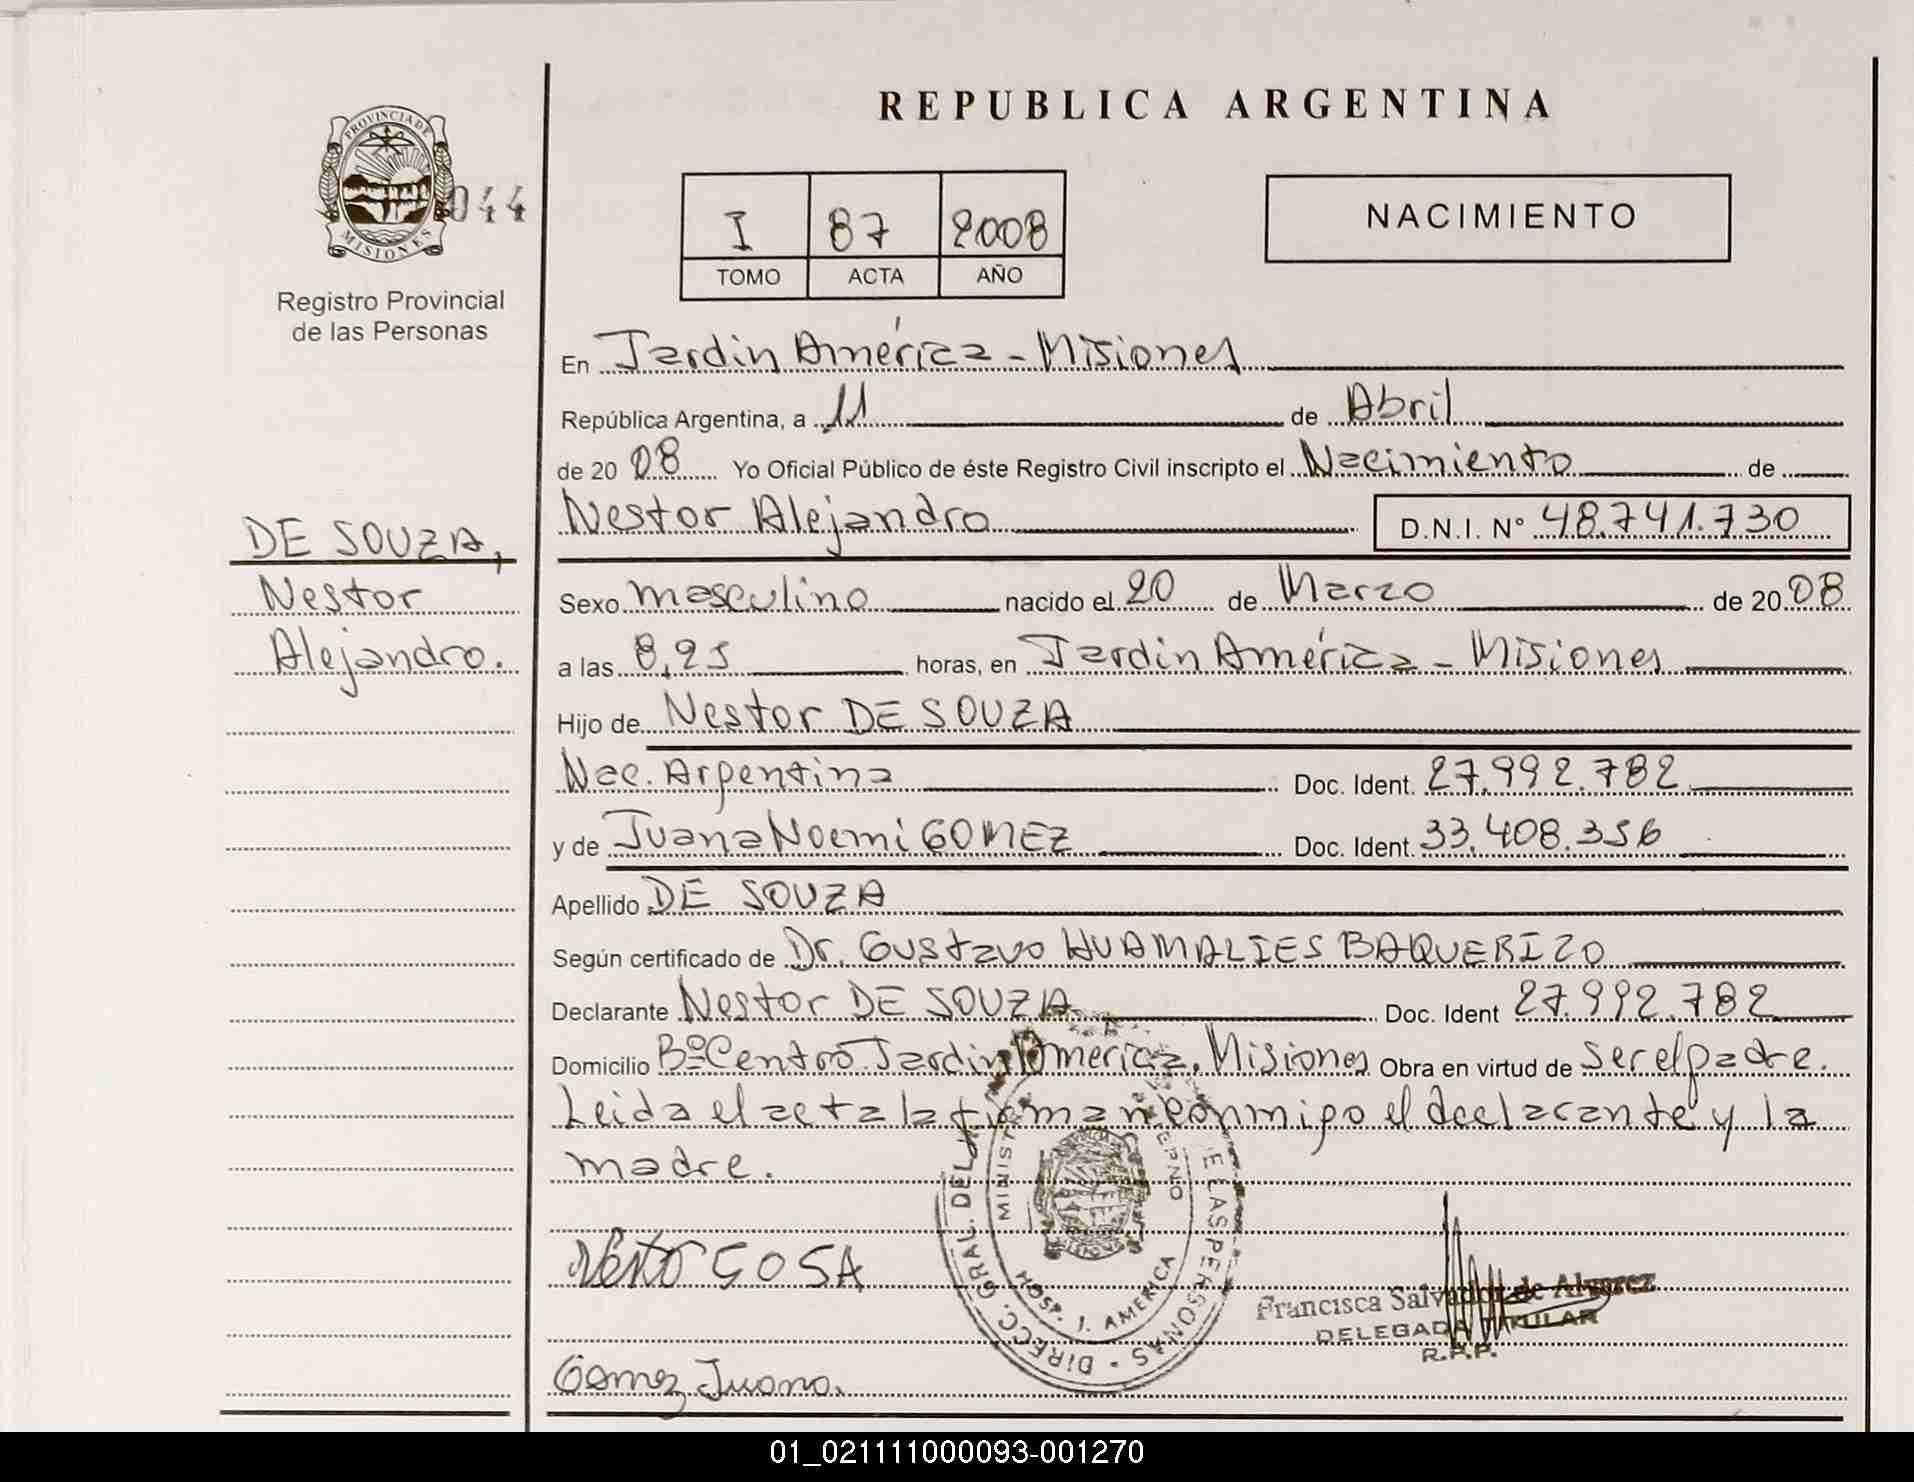 REPUBLICA ARGENTINA
PROVINCIA DE
MISIONES
044
Registro Provincial
de las Personas
I 87 2008
TOMO ACTA AÑO
NACIMIENTO
En Jardin América - Misiones
República Argentina, a 11 de Abril
de 2008 Yo Oficial Público de éste Registro Civil inscripto el Nacimiento de
Nestor Alejandro D.N.I. Nº 48.741.730
DE SOUZA,
Nestor
Alejandro.
Sexo masculino nacido el 20 de Marzo de 2008
a las 8,25 horas, en Jardin América - Misiones
Hijo de Nestor DE SOUZA
Nac. Argentina Doc. Ident. 27.992.782
y de Juana Noemi GOMEZ Doc. Ident. 33.408.356
Apellido DE SOUZA
Según certificado de Dr. Gustavo HUAMALIES BAQUERIZO
Declarante Nestor DE SOUZA Doc. Ident 27.992.782
Domicilio Bº Centro. Jardin America. Misiones Obra en virtud de ser el padre.
Leida el acta la firman conmigo el declarante y la
madre.
DIRECC. GRAL. DEL DE LAS PERSONAS
MINISTR
HOSP. J. AMERICA
Francisca Salvador de Alvarez
DELEGADA TITULAR
R.P.P.
Gomez Juana.
01_021111000093-001270